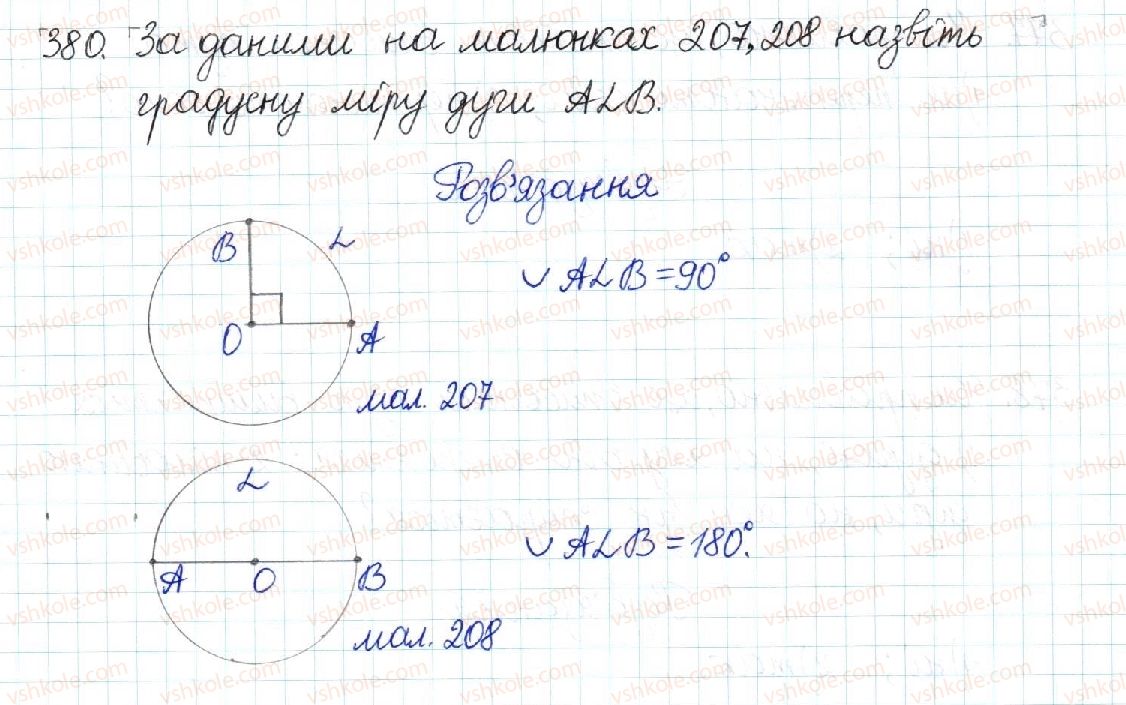 380. За даними на малюнках 207, 208 назвіть
градусну міру дуги ALB.
Розв'язання
B
L
∪ ALB = 90°
O
A
мал. 207
L
∪ ALB = 180°.
A
O
B
мал. 208
vshkole.com